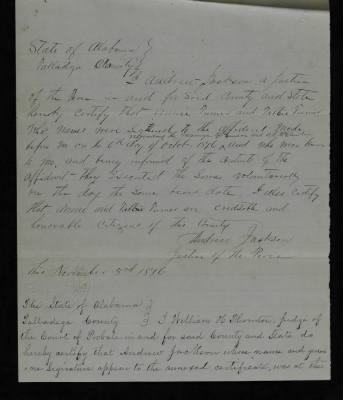 State of Alabama
Talladega County
I Andrew Jackson a Justice
of the Peace in and for Said County and State
hereby Certify that Turner and Tabbie Turner
Who Names were to the Affidavit Made
before me on the 6th day of October 1896, and who were known
to me, and being informed of the content of the
Affidavit they Executed the Same voluntarily
on the day the Same bears date. I also Certify
that and Turner are credible and
honorable Citizens of this County
Andrew Jackson
Justice of the Peace
this November 3rd 1896
The State of Alabama
Talladega County I William H Thornton, judge of
the Court of Probate in and for said County and State do
hereby certify that Andrew Jackson whose name and genu-
ine signature appear to the annexed certificate, was at the